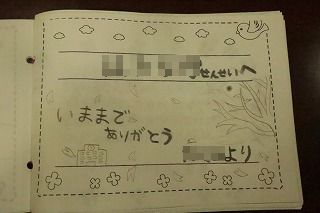 せんせいへ
いままで
ありがとう
より